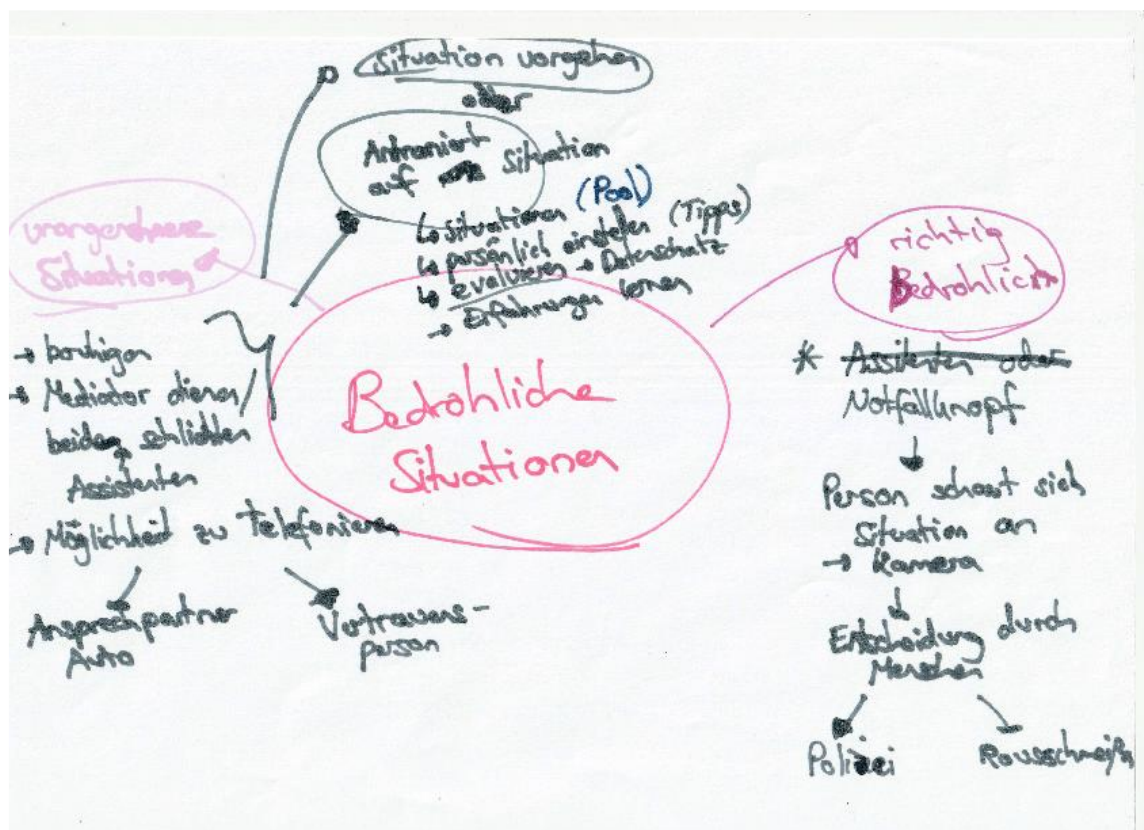 Situation vorgehen
oder
Antrainiert
auf Situation
↳ situationen (Pool)
↳ persönlich einstellen (Tipps)
↳ evaluieren → Datenschatz
→ Erfahrungen lernen
unangenehme
Situationen
→ beruhigen
→ Mediator dienen
beiden schlichten
Assistenten
→ Möglichkeit zu telefonieren
Ansprechpartner
Auto
Vertrauens-
person
Bedrohliche
Situationen
richtig
Bedrohlich
* Assistenten oder
Notfallknopf
Person schaut sich
Situation an
→ Kamera
Entscheidung durch
Menschen
Polizei
Rausschmeißen